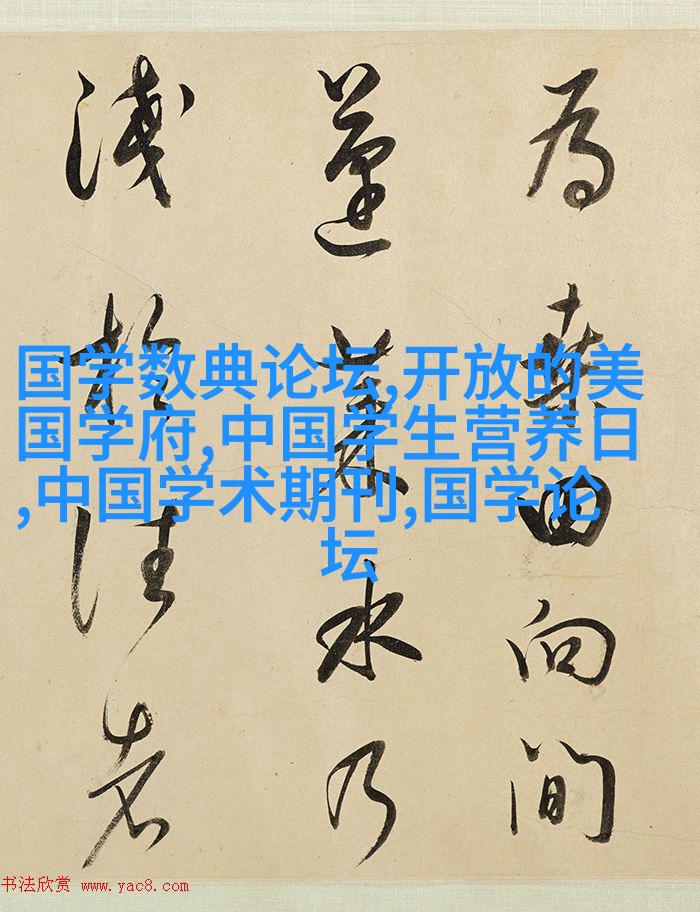 為桑田向間
蓬萊水乃
淺於往者
国学数典论坛,开放的美
国学府,中国学生营养日
,中国学术期刊,国学论
坛
书法欣赏 www.yac8.com